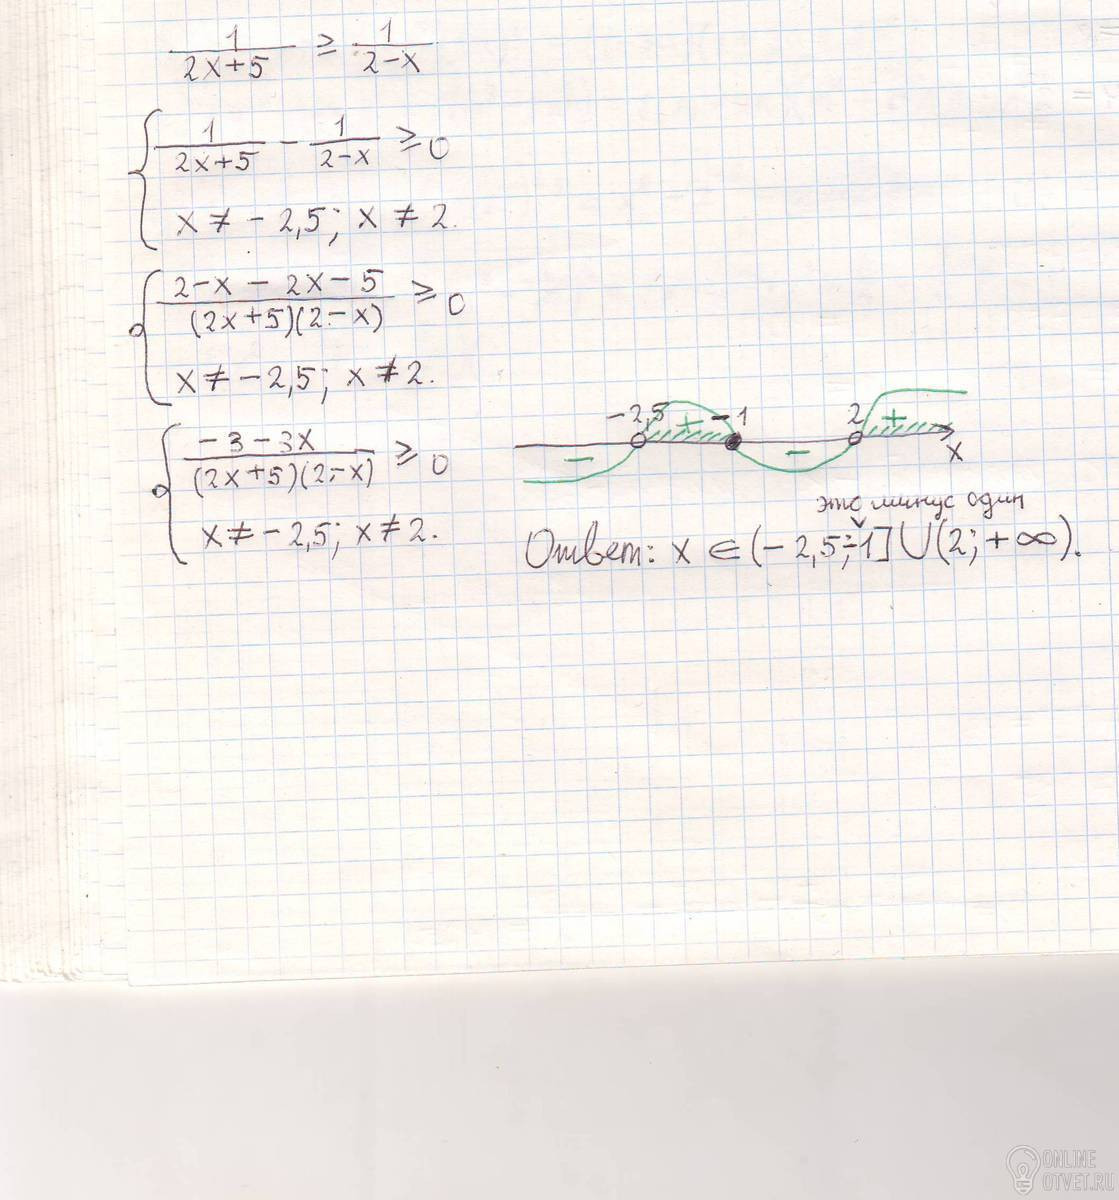 1/(2x+5) ≥ 1/(2-x)
{ 1/(2x+5) - 1/(2-x) ≥ 0
x ≠ -2,5; x ≠ 2.
{ (2-x-2x-5)/((2x+5)(2-x)) ≥ 0
x ≠ -2,5; x ≠ 2.
{ (-3-3x)/((2x+5)(2-x)) ≥ 0
x ≠ -2,5; x ≠ 2.
-2,5 -1 2
- + - +
x
это минус один
Ответ: x ∈ (-2,5; -1] ∪ (2; +∞).
ONLINE
OTVET.RU